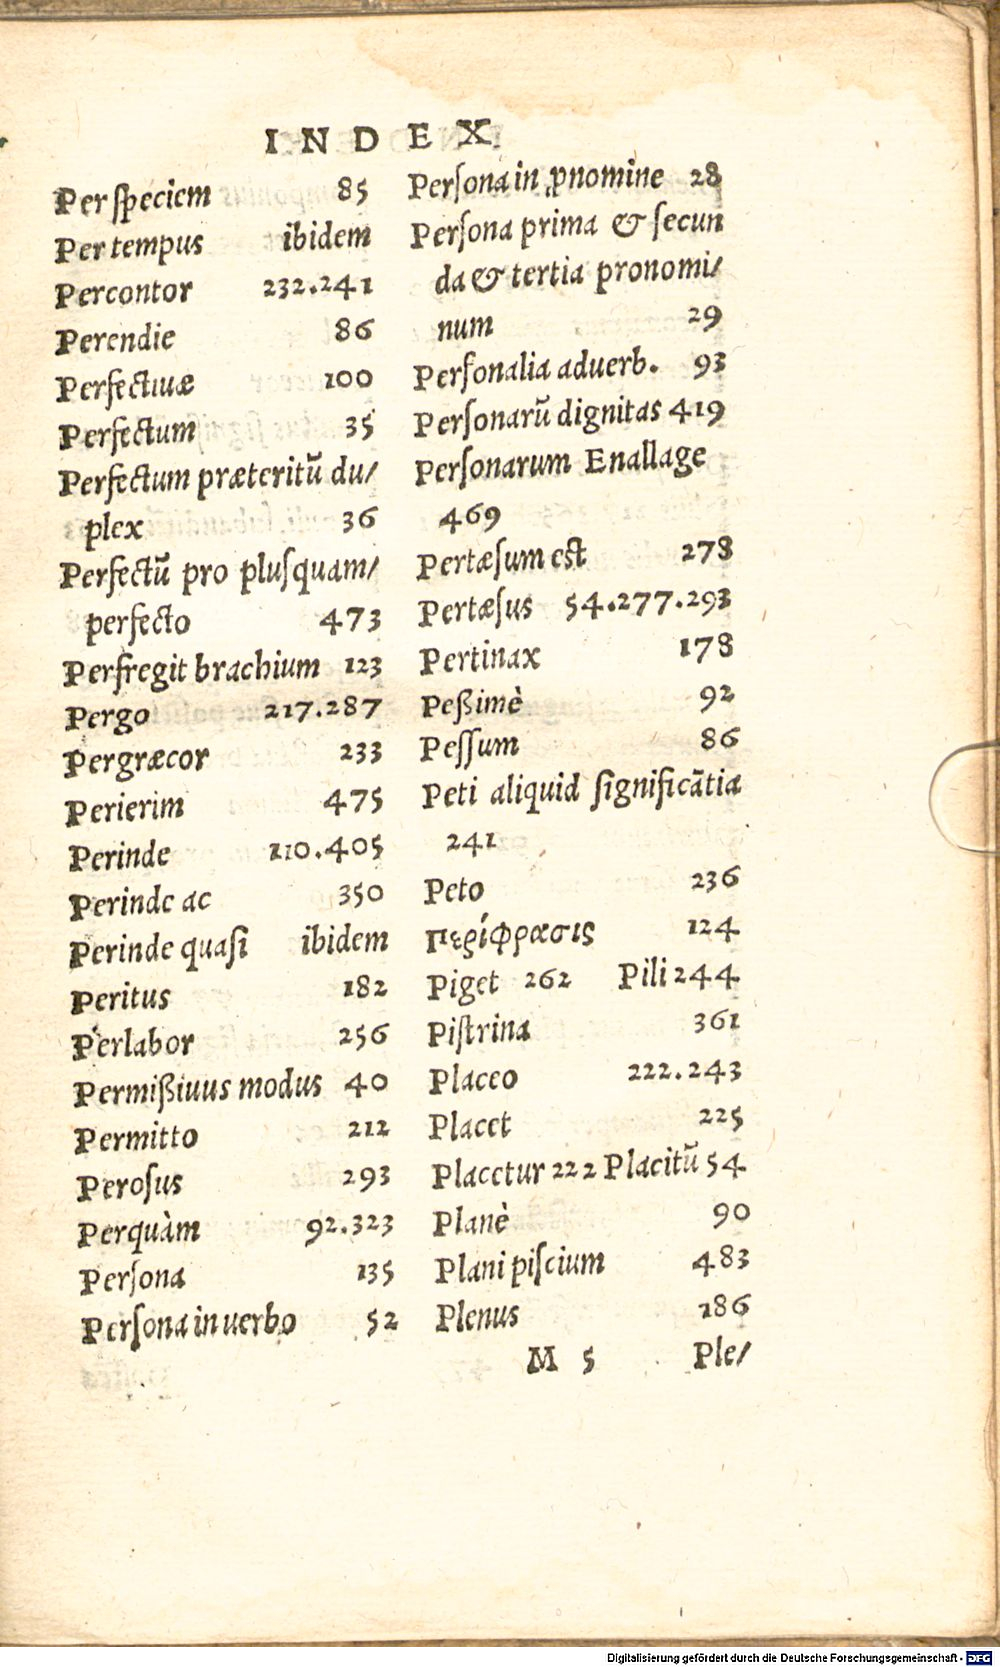 INDEX
Per speciem 85
Per tempus ibidem
Percontor 232.241
Perendie 86
Perfectiuæ 100
Perfectum 35
Perfectum præteritū du/
plex 36
Perfectū pro plusquam/
perfecto 473
Perfregit brachium 123
Pergo 217.287
Pergræcor 233
Perierim 475
Perinde 110.405
Perinde ac 350
Perinde quasi ibidem
Peritus 182
Perlabor 256
Permißiuus modus 40
Permitto 212
Perosus 293
Perquàm 92.323
Persona 135
Persona in uerbo 52
Persona in ꝓnomine 28
Persona prima & secun
da & tertia pronomi/
num 29
Personalia aduerb. 93
Personarū dignitas 419
Personarum Enallage
469
Pertæsum est 278
Pertæsus 54.277.293
Pertinax 178
Peßimè 92
Pessum 86
Peti aliquid significātia
241
Peto 236
Περίφρασις 124
Piget 262 Pili 244
Pistrina 361
Placeo 222.243
Placet 225
Placetur 222 Placitū 54
Planè 90
Plani piscium 483
Plenus 186
M 5 Ple/
Digitalisierung gefördert durch die Deutsche Forschungsgemeinschaft - DFG